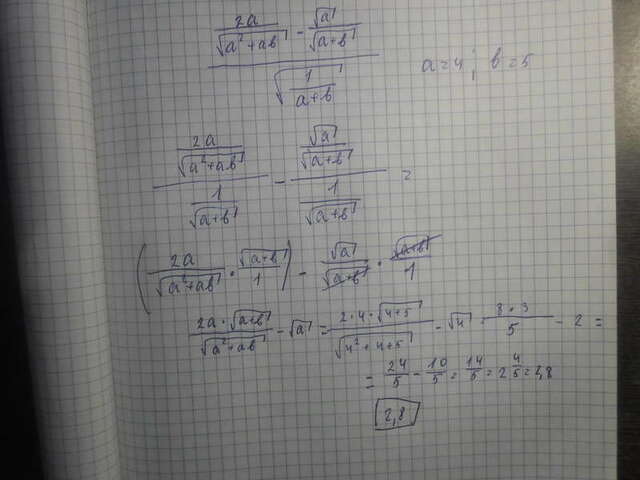 2a/√(a²+ab) - √a/√(a+b)
√(1/(a+b))
a=4; b=5
2a/√(a²+ab) / 1/√(a+b) - √a/√(a+b) / 1/√(a+b) =
(2a/√(a²+ab) · √(a+b)/1) - √a/√(a+b) · √(a+b)/1
2a·√(a+b)/√(a²+ab) - √a = 2·4·√(4+5)/√(4²+4+5) - √4 · 8·3/5 - 2 =
= 24/5 - 10/5 = 14/5 = 2 4/5 = 2,8
2,8